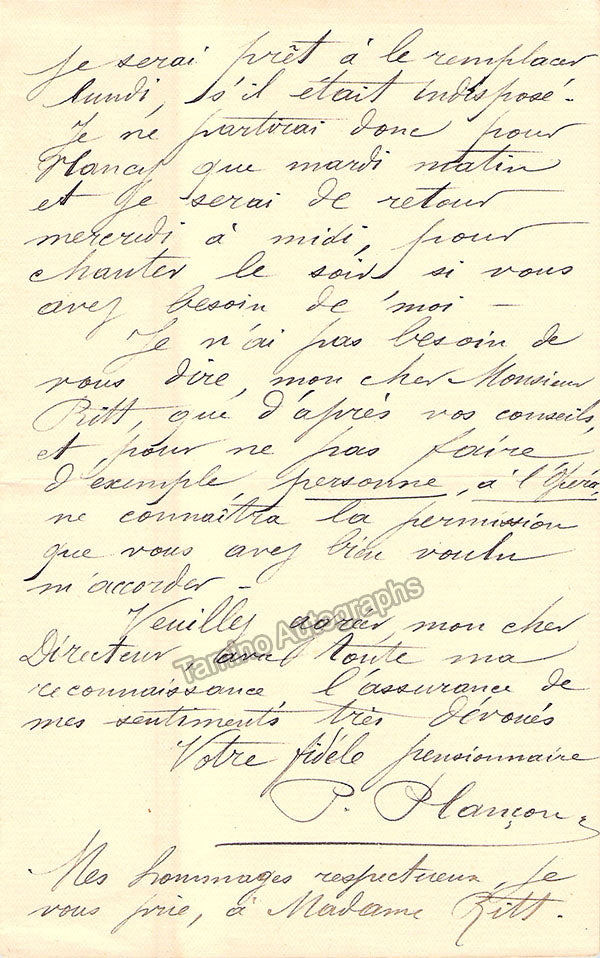 Je serai prêt à le remplacer
lundi, s'il était indisposé -
Je ne partirai donc pour
Nancy que mardi matin
et je serai de retour
mercredi à midi, pour
chanter le soir si vous
avez besoin de moi -
Je n'ai pas besoin de
vous dire, mon cher Monsieur
Ritt, que d'après vos conseils,
et pour ne pas faire
d'exemple, personne, à l'Opéra,
ne connaîtra la permission
que vous avez bien voulu
m'accorder -
Veuillez agréer mon cher
Directeur, avec toute ma
reconnaissance l'assurance de
mes sentiments très dévoués
Votre fidèle pensionnaire
P. Plançon
Mes hommages respectueux, je
vous prie, à Madame Ritt.
Tamino Autographs